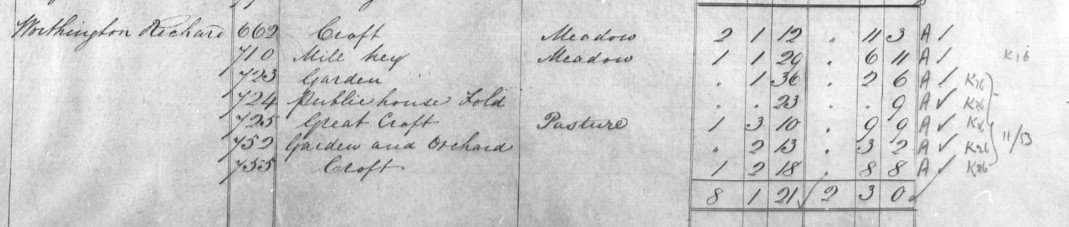 Worthington Richard 662 Croft Meadow 2 1 12 . 11 3 A ✓
710 Mill hey Meadow 1 1 29 . 6 11 A ✓ K16
723 Garden . 1 36 . 2 6 A ✓ K26
724 Public house Fold . . 23 . . 9 A ✓ K26
725 Great Croft Pasture 1 3 10 . 9 9 A ✓ K26
752 Garden and Orchard . 2 13 . 3 2 A ✓ K26 11/13
755 Croft 1 2 18 . 8 8 A ✓ K26
8 1 21 ✓ 2 3 0 ✓